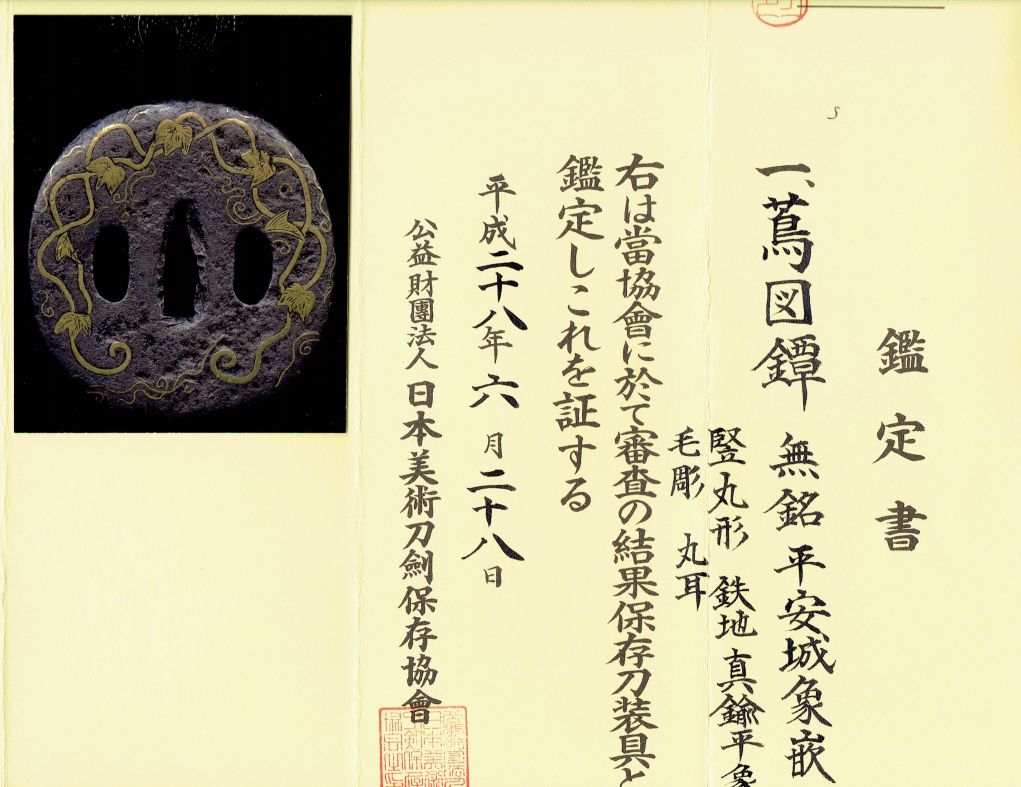 鑑定書
一、蔦図鐔 無銘 平安城象嵌
竪丸形 鉄地 真鍮平象
毛彫 丸耳
右は當協會に於て審査の結果保存刀装具と
鑑定しこれを証する
平成二十八年 六月二十八日
公益財團法人 日本美術刀劍保存協會